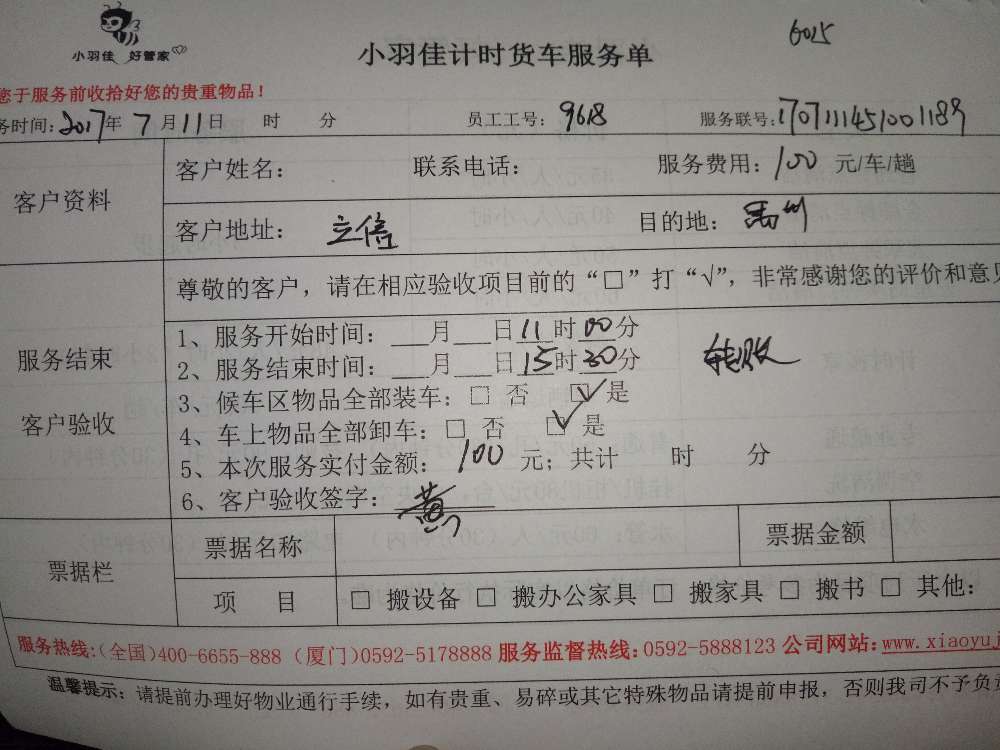 6015
小羽佳 好管家
小羽佳计时货车服务单
您于服务前收拾好您的贵重物品！
务时间：2017年 7 月 11 日 时 分 员工工号：9618 服务联号：1707111451001189
客户资料
客户姓名： 联系电话： 服务费用：100 元/车/趟
客户地址：立信 目的地：禹州
服务结束
客户验收
尊敬的客户，请在相应验收项目前的“□”打“√”，非常感谢您的评价和意见
1、服务开始时间：___月___日11时00分
2、服务结束时间：___月___日15时30分
转账
3、候车区物品全部装车：□ 否 ☑ 是
4、车上物品全部卸车：□ 否 ☑ 是
5、本次服务实付金额：100 元；共计 时 分
6、客户验收签字：黄
票据栏
票据名称 票据金额
项 目 □ 搬设备 □ 搬办公家具 □ 搬家具 □ 搬书 □ 其他：
服务热线：(全国)400-6655-888 (厦门)0592-5178888 服务监督热线：0592-5888123 公司网站：www.xiaoyuj
温馨提示：请提前办理好物业通行手续，如有贵重、易碎或其它特殊物品请提前申报，否则我司不予负责